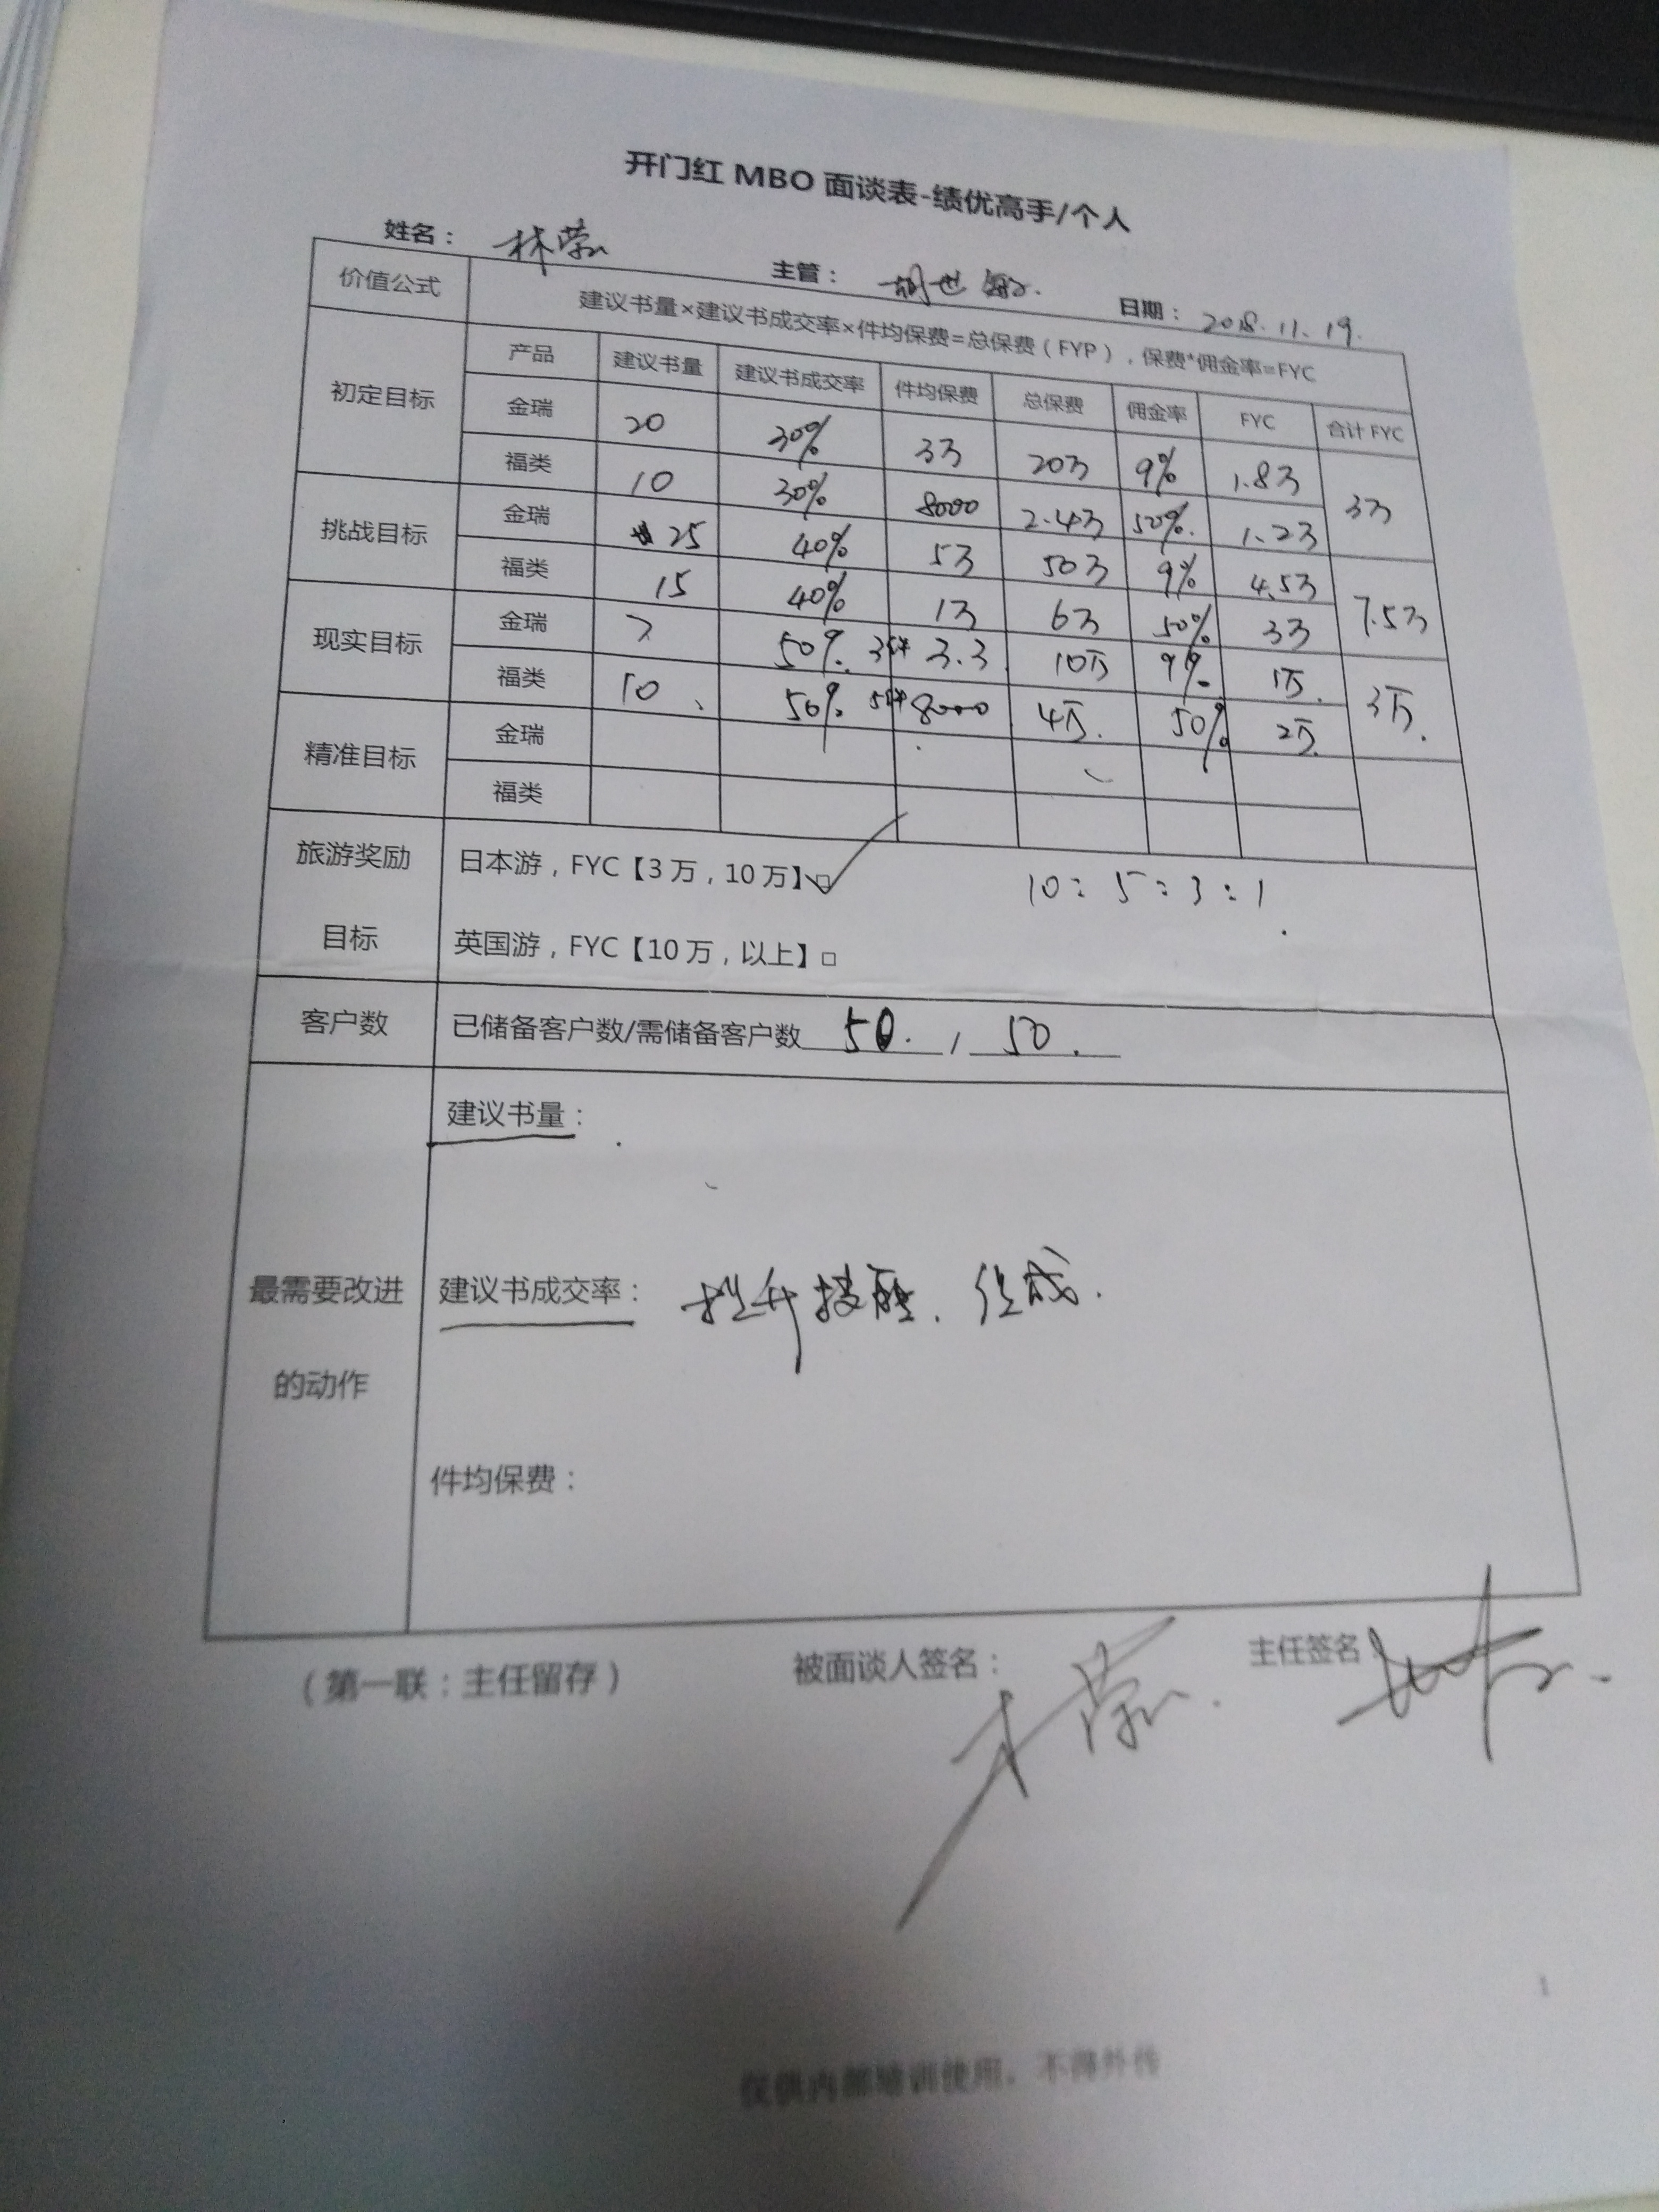 开门红 MBO 面谈表-绩优高手/个人
姓名： 林荣 主管： 胡世 日期： 2018.11.19.
价值公式 建议书量×建议书成交率×件均保费=总保费（FYP），保费*佣金率=FYC
初定目标 产品 建议书量 建议书成交率 件均保费 总保费 佣金率 FYC 合计 FYC
金瑞 20 30% 3万 20万 9% 1.8万 3万
福类 10 30% 8000 2.4万 50%. 1.2万
挑战目标 金瑞 25 40% 5万 50万 9% 4.5万 7.5万
福类 15 40% 1万 6万 50% 3万
现实目标 金瑞 7 50%. 3件 3.3 10万 9%. 1万. 3万.
福类 10、 50%. 5件 8000 4万. 50% 2万.
精准目标 金瑞
福类
旅游奖励 日本游，FYC【3万，10万】☑ 10：5：3：1.
目标 英国游，FYC【10万，以上】□
客户数 已储备客户数/需储备客户数 50. , 50.
建议书量：
最需要改进 建议书成交率： 提升技能.
的动作
件均保费：
（第一联：主任留存） 被面谈人签名： 林荣. 主任签名：
仅供内部培训使用，不得外传
1